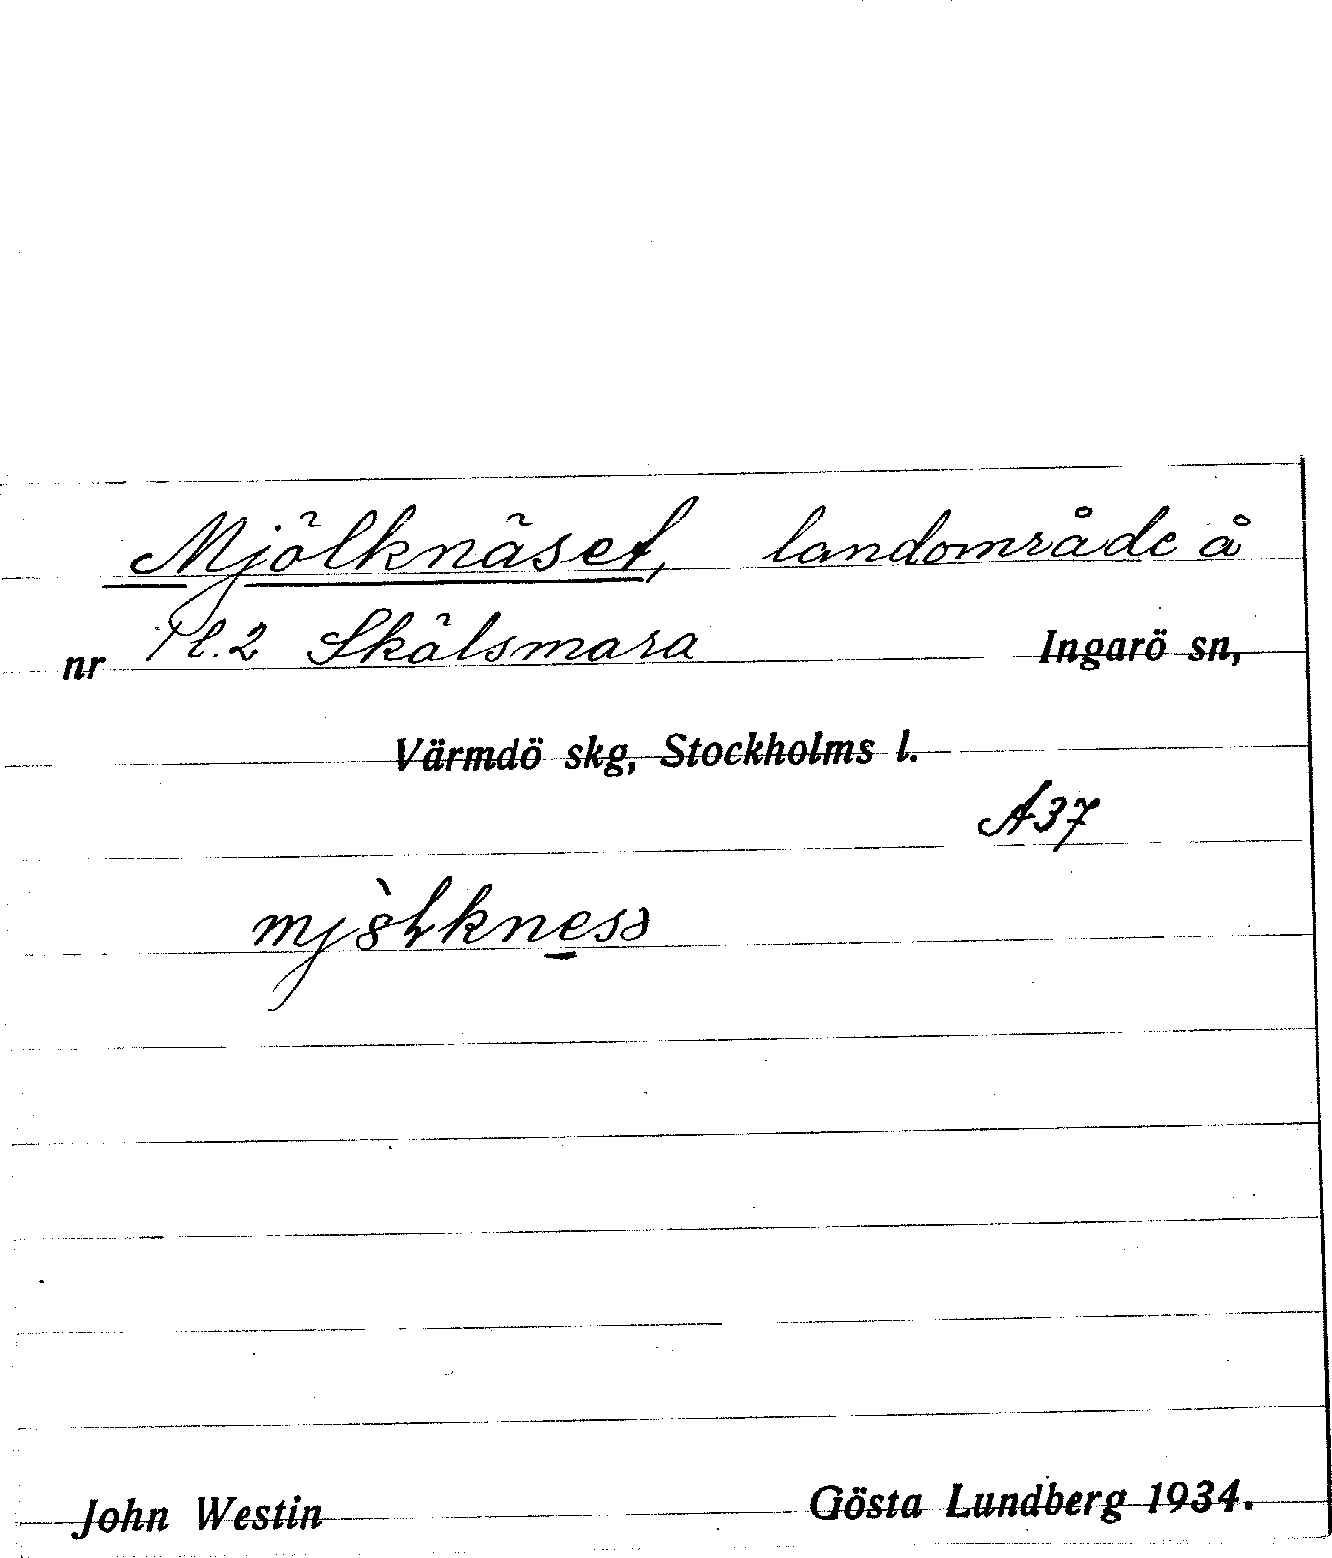 Mjölknäset, landområde å
nr 1 l. 2 Skälsmara Ingarö sn,
Värmdö skg, Stockholms l.
A37
John Westin Gösta Lundberg 1934.